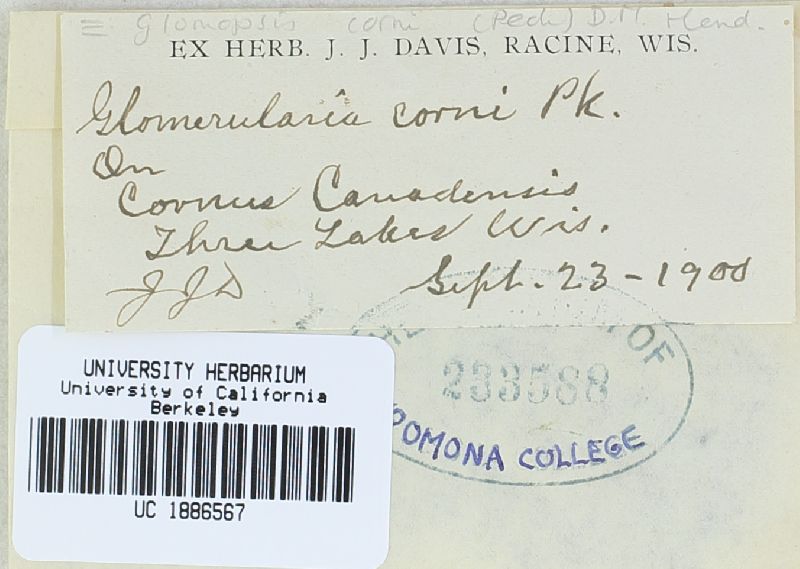 = Glomopsis corni (Peck) D.M. Hend.
EX HERB. J. J. DAVIS, RACINE, WIS.
Glomerularia corni Pk.
On
Cornus Canadensis
Three Lakes Wis.
JJD Sept. 23-1900
OF
233588
POMONA COLLEGE
UNIVERSITY HERBARIUM
University of California
Berkeley
UC 1886567